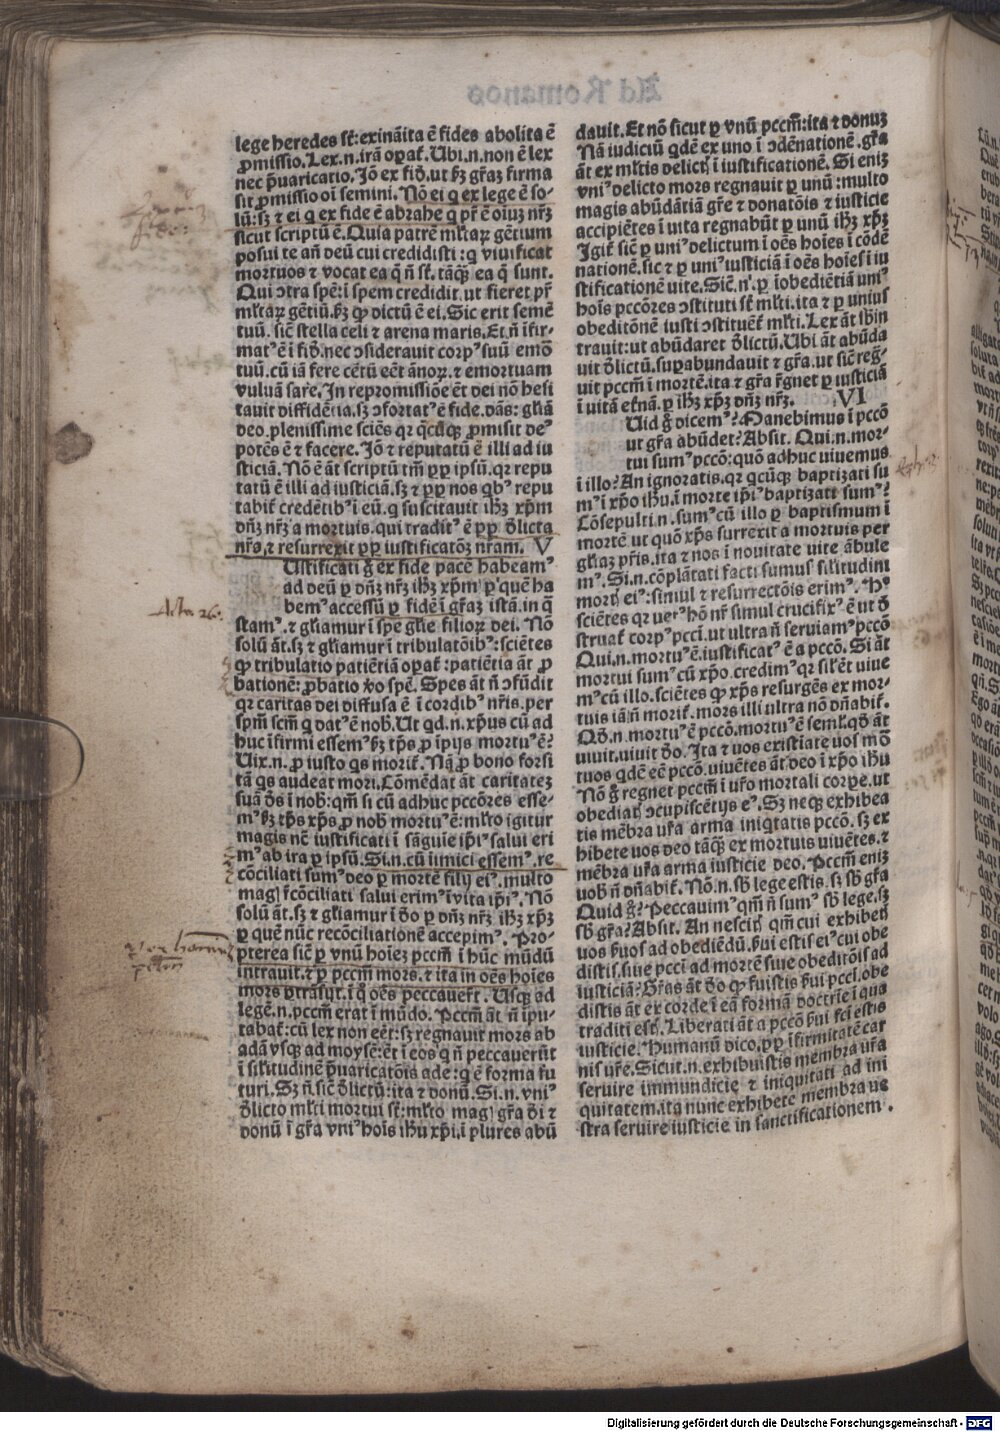 lege heredes st̄:exinãita ẽ fides abolita ẽ
ꝓmissio. Lex.n.irã opat̄. Ubi.n.non ẽ lex
nec p̄uaricatio. Iõ ex fid̄.ut ẜꝫ gr̄aꝫ firma
sit ꝓmissio oĩ semini. Nõ ei q ex lege ẽ so-
lũ:sꝫ ⁊ ei q ex fide ẽ abrahe q pr̄ ẽ oiuꝫ nr̄ꝫ
sicut scriptũ ẽ. Quia patrẽ ml̄taꝝ gẽtium
posui te añ deũ cui credidisti:q viuificat
mortuos ⁊ vocat ea q ñ st̄.tãqꝫ ea q sunt.
Qui ↄtra spẽ:ĩ spem credidit ut fieret pr̄
ml̄taꝝ gẽtiũ.ẜꝫ qꝫ dictũ ẽ ei. Sic erit semẽ
tuũ. sic̄ stella celi ⁊ arena maris. Et ñ ĩfir-
matꝰ ẽ ĩ fid̄.nec ↄsiderauit corpꝰ suũ emõ
tuũ.cũ iã fere cẽtũ eẽt ãnoꝝ.⁊ emortuam
vuluã sare. In repromissiõe ẽt dei nõ hesi
tauit diffidẽtia.sꝫ ↄfortatꝰ ẽ fide.dãs: gl̄iã
deo.plenissime sciẽs qꝛ qc̃ũqꝫ ꝓmisit deꝰ
potẽs ẽ ⁊ facere. Iõ ⁊ reputatũ ẽ illi ad iu
sticiã. Nõ ẽ ãt scriptũ tm̄ ꝓp ipsũ.qꝛ repu
tatũ ẽ illi ad iusticiã.sꝫ ⁊ ꝓp nos qbꝰ repu
tabit̄ credẽtibꝰ ĩ eũ.q suscitauit ih̄ꝫ xp̄m
dn̄ꝫ nr̄ꝫ a mortuis.qui traditꝰ ẽ ꝓp d̄licta
nr̄a.⁊ resurrexit ꝓp iustificatõꝫ nr̄am. V
Ustificati g̃ ex fide pacẽ habeamꝰ
ad deũ ꝑ dn̄ꝫ nr̄ꝫ ih̄ꝫ xp̄m ꝑ quẽ ha
bemꝰ accessũ ꝑ fidẽ ĩ gr̄aꝫ istã.in q̃
Acta 26.
stamꝰ.⁊ gl̄iamur ĩ spe gl̄ie filioꝝ dei. Nõ
solũ ãt.sꝫ ⁊ gl̄iamur ĩ tribulatõibꝰ:sciẽtes
qꝫ tribulatio patiẽtiã opat̄:patiẽtia ãt ꝓ
batione:ꝓbatio v̄o spẽ. Spes ãt ñ ↄfũdit
qꝛ caritas dei diffusa ẽ ĩ cordibꝰ nr̄is.per
spm̄ scm̄ q datꝰ ẽ nob. Ut qd.n.xp̄us cũ ad
huc ĩfirmi essemꝰ ẜꝫ tp̄s ꝓ ipijs mortuꝰ ẽ?
Uix.n.ꝓ iusto qs morit̄. Nã ꝓ bono forsi
tã qs audeat mori. Cõmẽdat ãt caritateꝫ
suã d̄s ĩ nob:qm̄ si cũ adhuc pccõres esse-
mꝰ ẜꝫ tp̄s xp̄s ꝓ nob mortuꝰ ẽ:ml̄to igitur
magis nc̃ iustificati ĩ sãguie ip̄iꝰ salui eri
mꝰ ab ira ꝑ ipsũ. Si.n.cũ iimici essemꝰ.re
cõciliati sumꝰ deo ꝑ mortẽ filij eiꝰ.multo
mag̃ r̃cõciliati salui erimꝰ ĩ vita ip̄iꝰ. Nõ
solũ ãt.sꝫ ⁊ gl̄iamur ĩ d̄o ꝑ dn̄ꝫ nr̄ꝫ ih̄ꝫ xp̄ꝫ
ꝑ quẽ nũc recõciliationẽ accepimꝰ. Pro-
pterea sic̄ ꝑ vnũ hoieꝫ pccm̄ ĩ hũc mũdũ
intrauit.⁊ ꝑ pccm̄ mors.⁊ ita in oẽs hoies
mors ꝑtrãsijt.ĩ q oẽs peccauer̄t. Usqꝫ ad
legẽ.n.pccm̄ erat ĩ mũdo. Pccm̄ ãt ñ ĩpu-
tabat̄:cũ lex non eẽt:sꝫ regnauit mors ab
adã vsqꝫ ad moysẽ:ẽt ĩ eos q ñ peccauerũt
ĩ sil̄itudinẽ p̄uaricatõis ade:q ẽ forma fu
turi. Sꝫ ñ sic̄ d̄lictũ:ita ⁊ donũ. Si.n.vniꝰ
d̄licto ml̄ti mortui st̄:ml̄to mag̃ gr̄a d̄i ⁊
donũ ĩ gr̄a vniꝰ hois ih̄u xp̄i.ĩ plures abũ
dauit. Et nõ sicut ꝑ vnũ pccm̄:ita ⁊ donuꝫ
Nã iudiciũ qdẽ ex uno ĩ ↄdẽnationẽ.gr̄a
ãt ex ml̄tis delict̄ ĩ iustificationẽ. Si eniꝫ
vniꝰ delicto mors regnauit ꝑ unũ:multo
magis abũdãtiã gr̄e ⁊ donatõis ⁊ iusticie
accipiẽtes ĩ uita regnabũt ꝑ unũ ih̄ꝫ xp̄ꝫ
Igit̄ sic̄ ꝑ uniꝰ delictum ĩ oẽs hoies ĩ cõdẽ
nationẽ.sic ⁊ ꝑ uniꝰ iusticiã ĩ oẽs hoies ĩ iu
stificationẽ uite. Sic̄.nꝰ.ꝑ ĩobediẽtiã uniꝰ
hois pccõres ↄstituti st̄ ml̄ti.ita ⁊ ꝑ unius
obeditõnẽ iusti ↄstituẽt̄ ml̄ti. Lex ãt sb̄in
trauit:ut abũdaret d̄lictũ. Ubi ãt abũda
uit d̄lictũ.suꝑabundauit ⁊ gr̄a.ut sic̄ reg-
uit pccm̄ ĩ mortẽ.ita ⁊ gr̄a r̃gnet ꝑ iusticiã
ĩ uitã et̃nã.ꝑ ih̄ꝫ xp̄ꝫ dn̄ꝫ nr̄ꝫ. VI
Uid g̃ dicemꝰ? Manebimus ĩ pccõ
ut gr̄a abũdet? Absit. Qui.n.mor-
tui sumꝰ pccõ:quõ adhuc uiuemus
ĩ illo? An ignoratis.qꝛ qc̃ũqꝫ baptizati su
mꝰ ĩ xp̄o ih̄u.ĩ morte ip̄iꝰ baptizati sumꝰ?
Cõsepulti.n.sumꝰ cũ illo ꝑ baptismum ĩ
mortẽ ut quõ xp̄s surrexit a mortuis per
gl̄iaꝫ pr̄is.ita ⁊ nos ĩ nouitate uite ãbule
mꝰ. Si.n.cõplãtati facti sumus sil̄itudini
mort̄ eiꝰ:simul ⁊ resurrectõis erimꝰ. Hᵒ
sciẽtes qꝛ uetꝰ hõ nr̄ simul crucifixꝰ ẽ ut d̄
struat̄ corpꝰ pccĩ.ut ultra ñ seruiamꝰ pccõ
Qui.n.mortuꝰ ẽ.iustificatꝰ ẽ a pccõ. Si ãt
mortui sumꝰ cũ xp̄o.credimꝰ qꝛ sil̄ ẽt uiue
mꝰ cũ illo.sciẽtes qꝫ xp̄s resurgẽs ex mor-
tuis iã ñ morit̄.mors illi ultra nõ dñabit̄.
Qd̄.n.mortuꝰ ẽ pccõ.mortuꝰ ẽ semꝉ.qd̄ ãt
uiuit.uiuit d̄o. Ita ⁊ uos existiate uos mõ
tuos qdẽ eẽ pccõ.uiuẽtes ãt deo ĩ xp̄o ih̄u
Nõ g̃ regnet pccm̄ ĩ ur̄o mortali corpe.ut
obediat̄ ↄcupiscẽtijs eꝰ. Sꝫ neqꝫ exhibea
tis mẽbra ur̄a arma iniqtatis pccõ.sꝫ ex
hibete uos deo tãqꝫ ex mortuis uiuẽtes.⁊
mẽbra ur̄a arma iusticie deo. Pccm̄ eniꝫ
uob ñ dñabit̄. Nõ.n.sb̄ lege estis.sꝫ sb̄ gr̄a
Quid g̃? Peccauimꝰ qm̄ ñ sumꝰ sb̄ lege.sꝫ
sb̄ gr̄a? Absit. An nescit̄ qm̄ cui exhibet̄
uos ẜuos ad obediẽdũ.ẜui estis eiꝰ cui obe
distis.siue pccĩ ad mortẽ siue obeditõis ad
iusticiã? Gr̄as ãt d̄o qꝫ fuistis ẜui pccĩ.obe
distis ãt ex corde ĩ eã formã doctrĩe ĩ qua
traditi est̄. Liberati ãt a pccõ ẜui fcĩ estis
iusticie. Humanũ dico.ꝓp ĩfirmitatẽ car
nis ur̄e. Sicut.n.exhibuistis membra ur̄a
seruire immundicie ⁊ iniquitati ad ini
quitatem.ita nunc exhibete membra ue
stra seruire iusticie in sanctificationem.
Digitalisierung gefördert durch die Deutsche Forschungsgemeinschaft - DFG